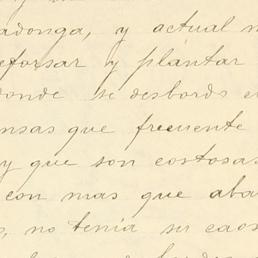 adonga, y actual
eforsar y plantar
donde se desbords e
nsas que frecuente
y que son costosas
con mas que aba
s, no tenia su caos